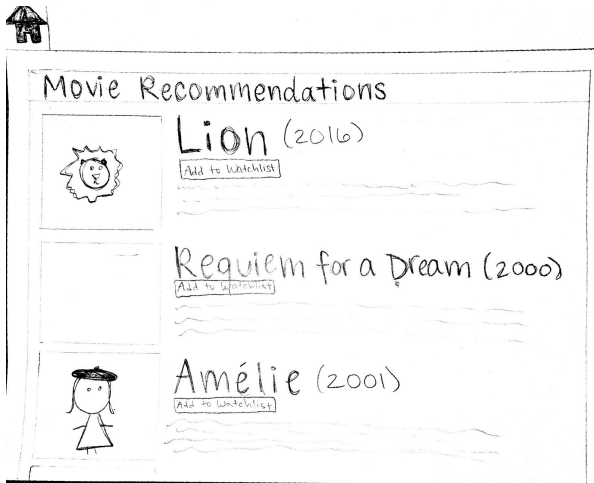 Movie Recommendations
Lion (2016)
Add to Watchlist
Requiem for a Dream (2000)
Add to Watchlist
Amélie (2001)
Add to Watchlist